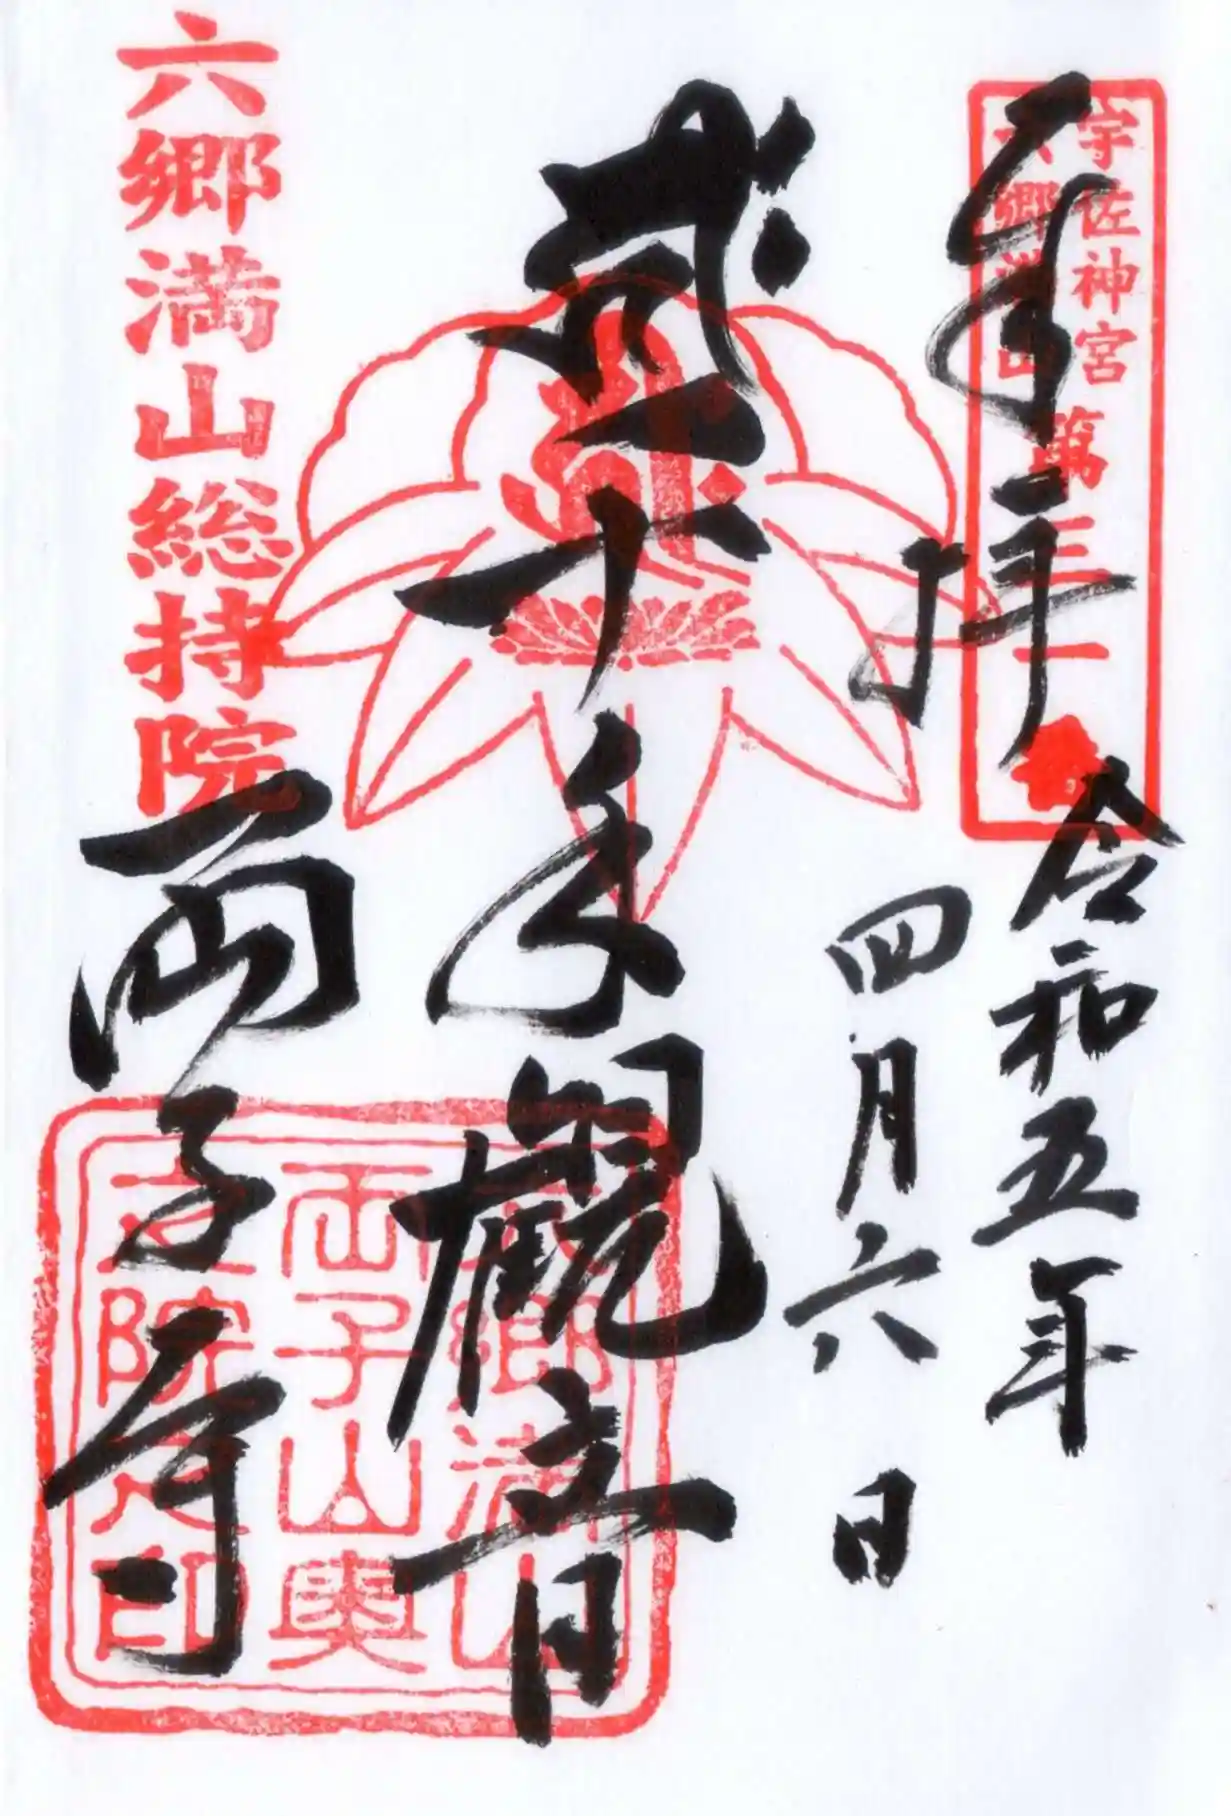 奉拝
宇佐神宮
六郷満山
第三十一番
令和五年
四月六日
千手観音
六郷満山総持院
両子寺
六郷満山
両子山奥
之院之印